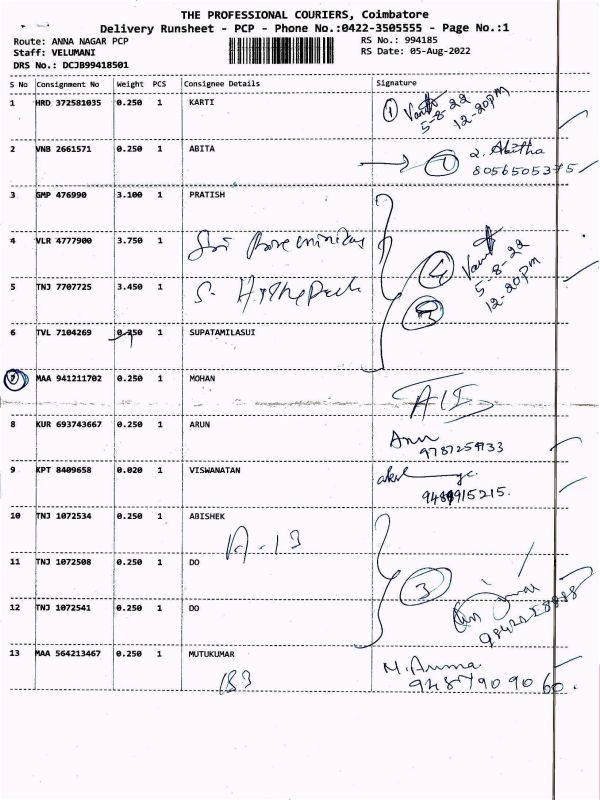 THE PROFESSIONAL COURIERS, Coimbatore
Delivery Runsheet - PCP - Phone No.:0422-3505555 - Page No.:1
Route: ANNA NAGAR PCP
RS No.: 994185
Staff: VELUMANI
RS Date: 05-Aug-2022
DRS No.: DCJB99418501
S No Consignment No Weight PCS Consignee Details Signature
1 HRD 372581035 0.250 1 KARTI
1
5-8-22
12-20pm
2 VNB 2661571 0.250 1 ABITA
1 2. Abitha
8056505375
3 GMP 476990 3.100 1 PRATISH
4 VLR 4777900 3.750 1
Sri
4
5-8-22
12-20pm
5 TNJ 7707725 3.450 1
S.
6 TVL 7104269 0.250 1 SUPATAMILASUI
7 MAA 941211702 0.250 1 MOHAN
8 KUR 693743667 0.250 1 ARUN
9 KPT 8409658 0.020 1 VISWANATAN
10 TNJ 1072534 0.250 1 ABISHEK
A-13
11 TNJ 1072508 0.250 1 DO
3
12 TNJ 1072541 0.250 1 DO
13 MAA 564213467 0.250 1 MUTUKUMAR
183
M. Amma